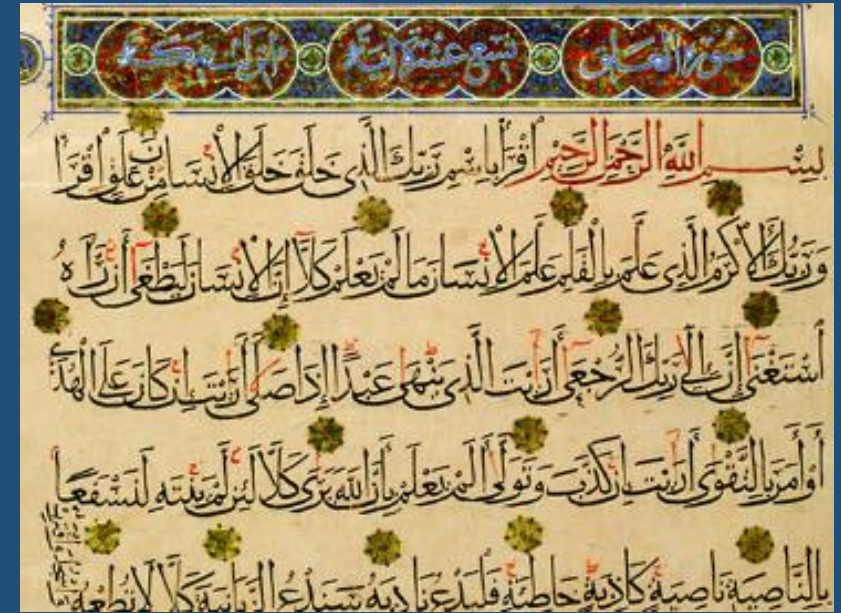 سورة العلق تسع عشرة آية
بسم الله الرحمن الرحيم اقرأ باسم ربك الذي خلق خلق الإنسان من علق اقرأ
وربك الأكرم الذي علم بالقلم علم الإنسان ما لم يعلم كلا إن الإنسان ليطغى أن رآه
استغنى إن إلى ربك الرجعى أرأيت الذي ينهى عبدا إذا صلى أرأيت إن كان على الهدى
أو أمر بالتقوى أرأيت إن كذب وتولى ألم يعلم بأن الله يرى كلا لئن لم ينته لنسفعا
بالناصية ناصية كاذبة خاطئة فليدع ناديه سندع الزبانية كلا لا تطعه